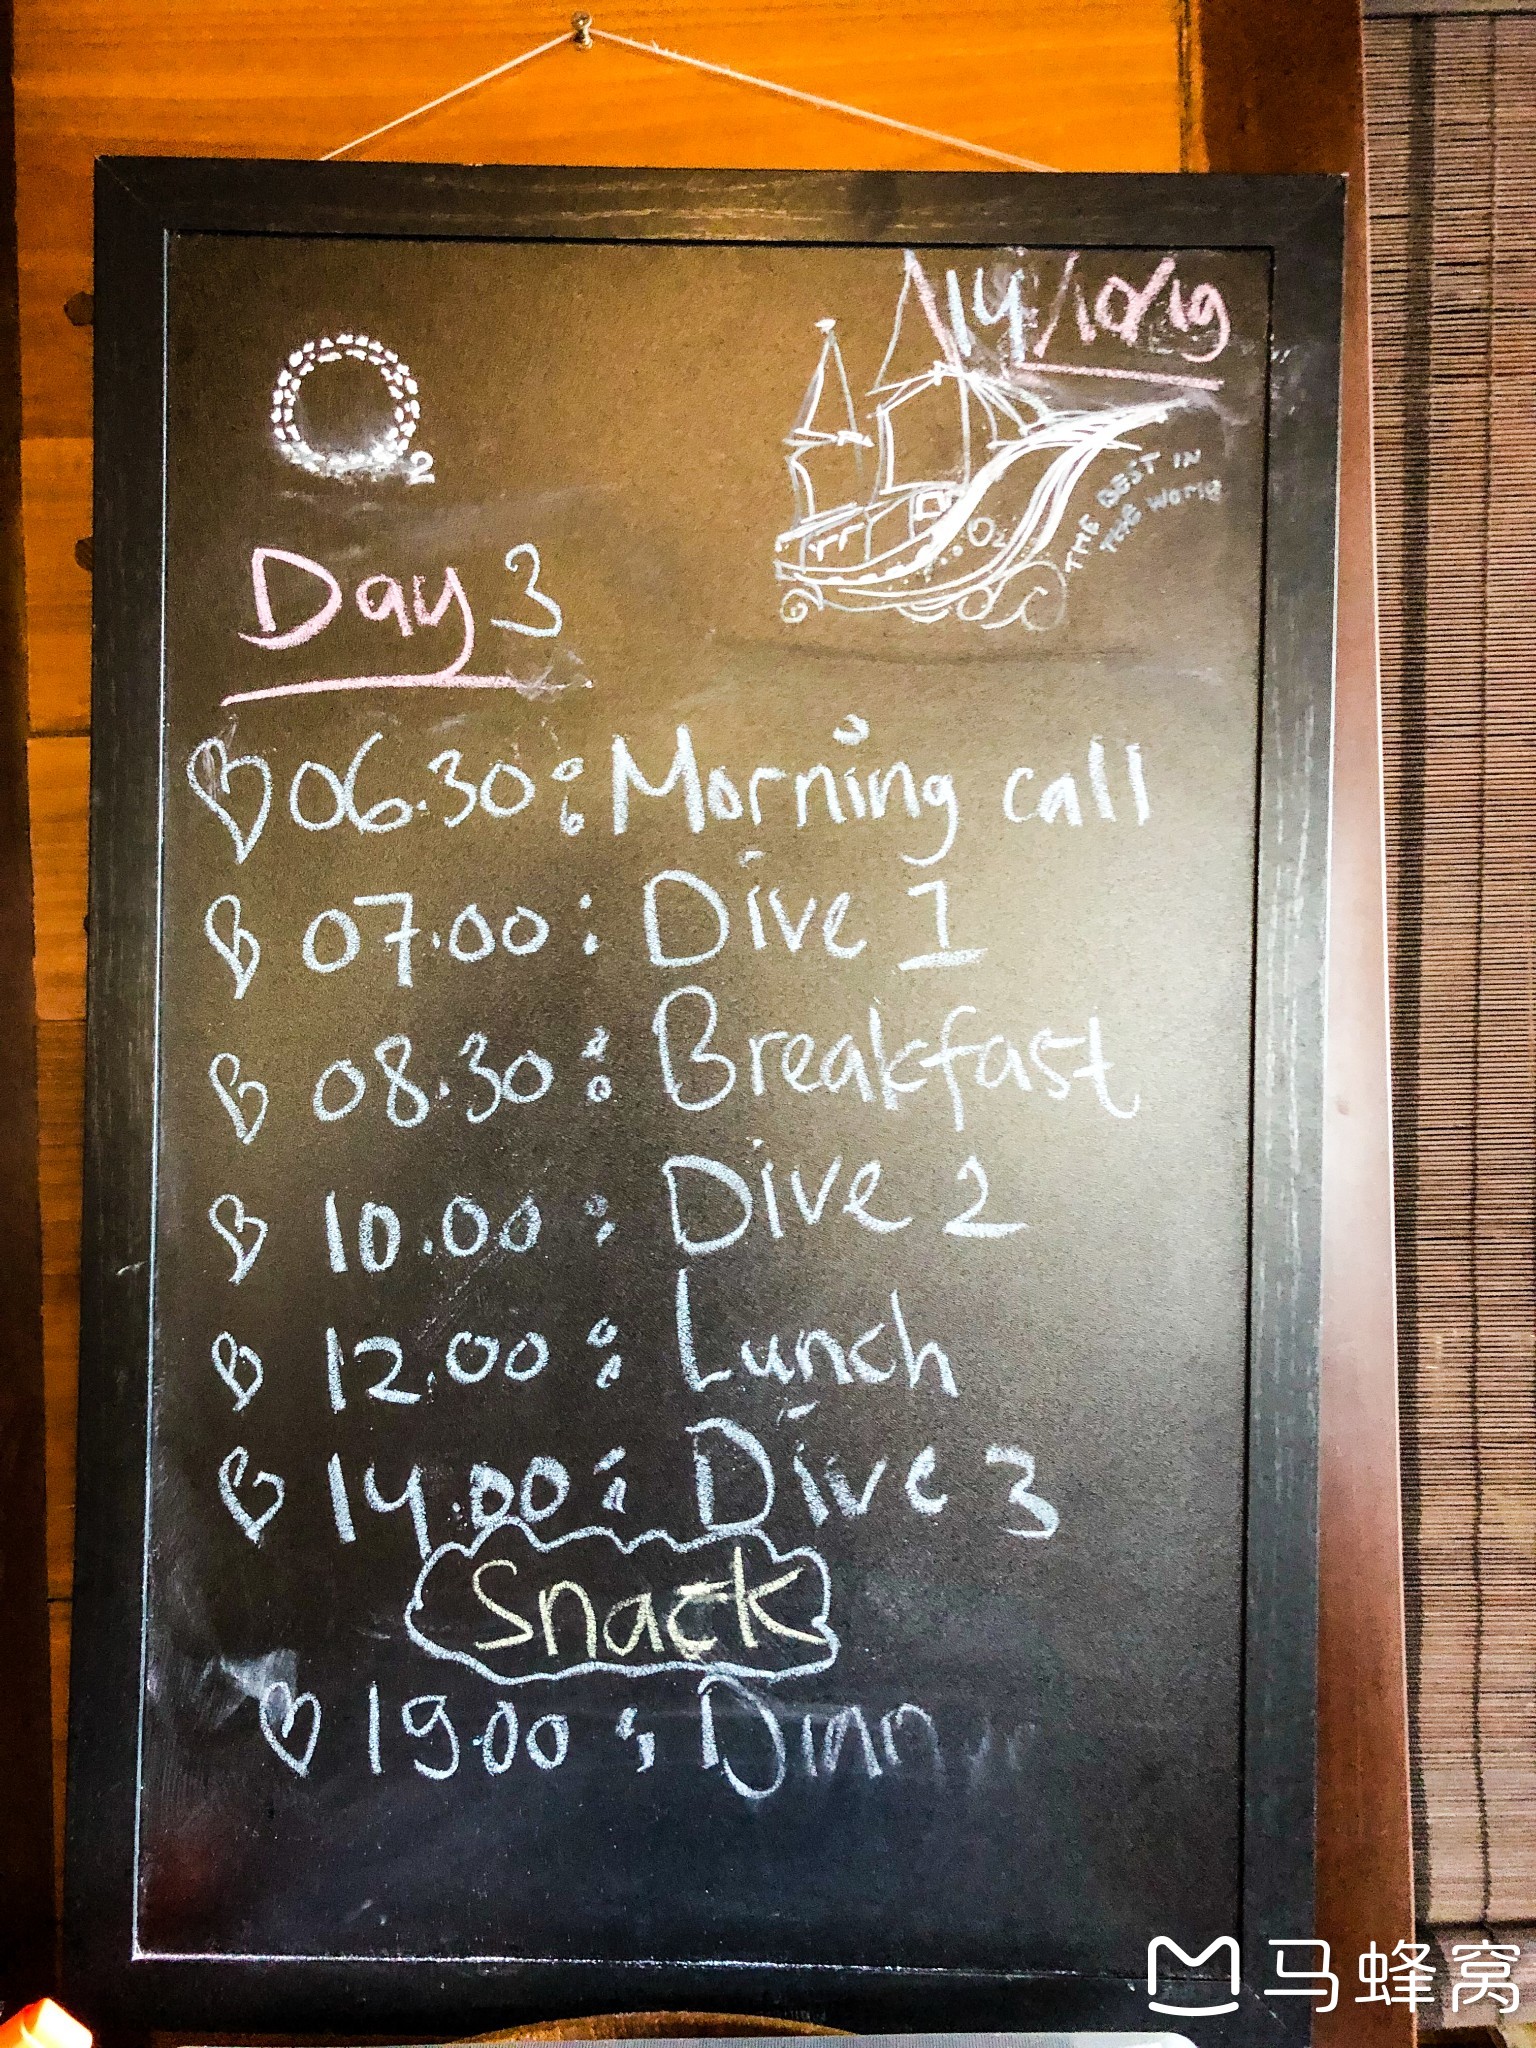 14/10/19
O2
THE BEST IN
THE WORLD
Day 3
06.30 : Morning call
07.00 : Dive 1
08.30 : Breakfast
10.00 : Dive 2
12.00 : Lunch
14.00 : Dive 3
Snack
19.00 : Dinn
马蜂窝